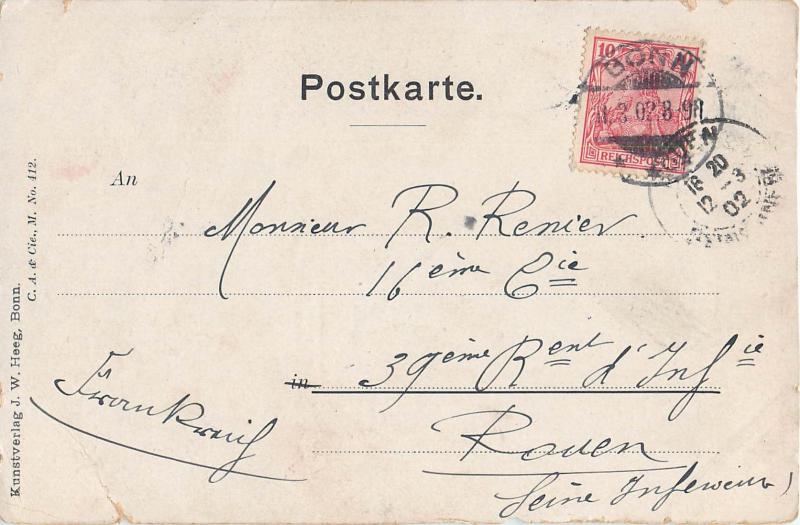 Postkarte.
10
REICHSPOST
BONN
11.3.02.8-9N
ROUEN
18 20
12 3
02
An
Monsieur R. Renier
16ème Cie
39ème Rent d'Infie
in
Rouen
Seine Inferieure
Frankreich
Kunstverlag J. W. Heeg, Bonn.
C. A. & Cie., M. No. 412.